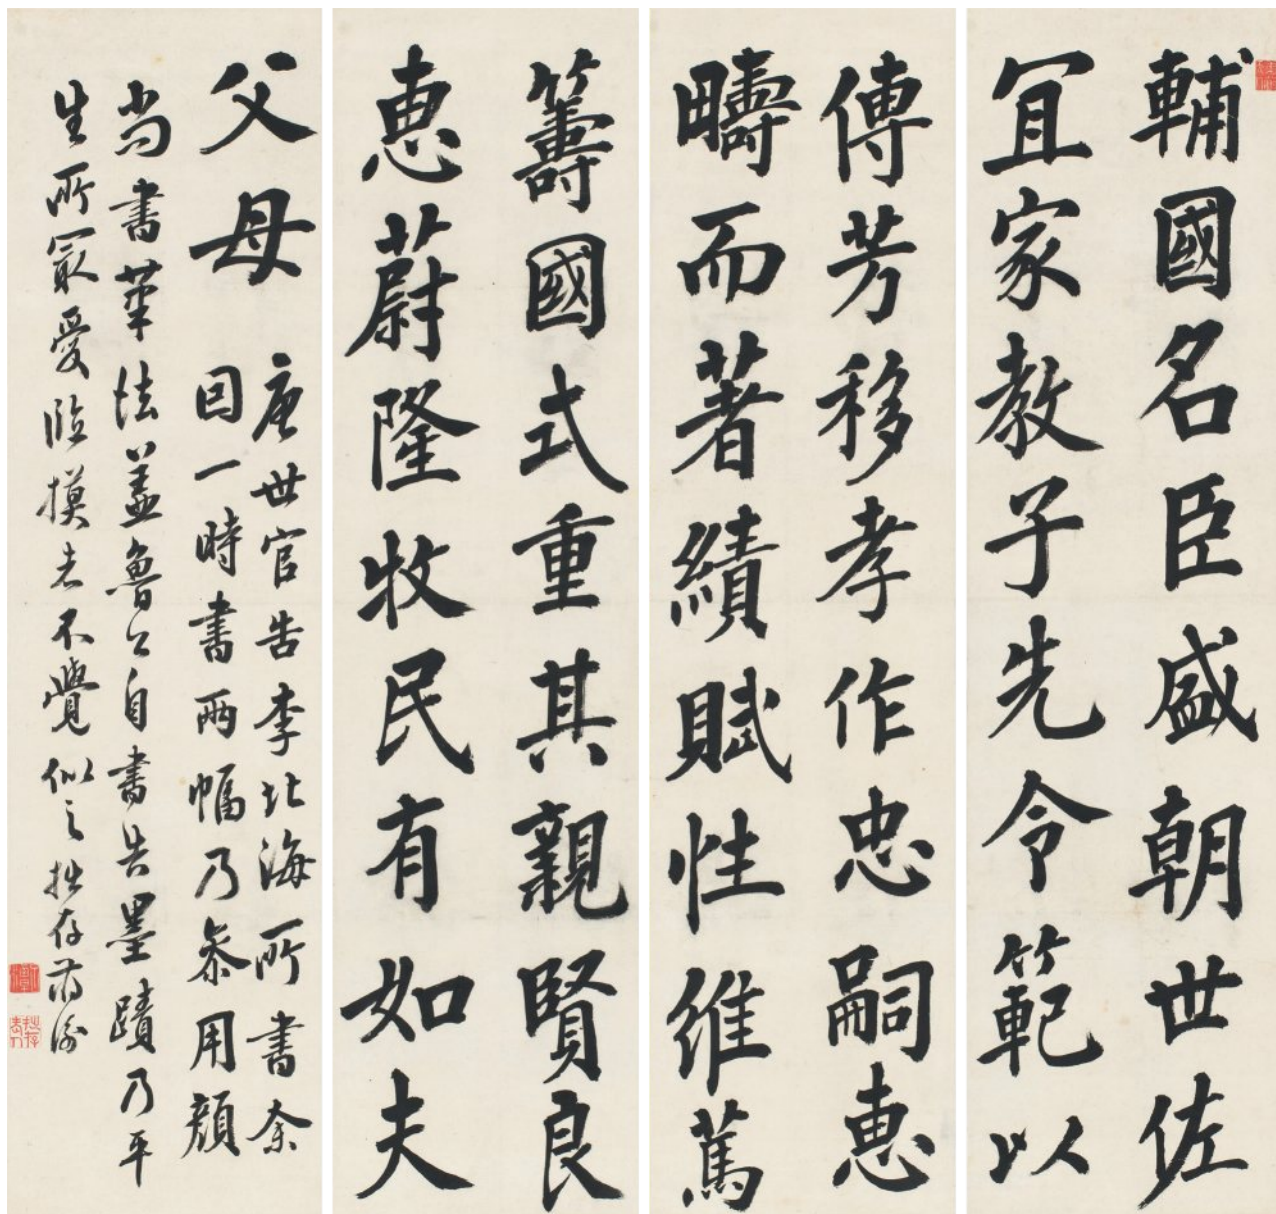 輔國名臣盛朝世佐
宜家教子先令範以
傳芳移孝作忠嗣惠
疇而著績賦性維篤
籌國式重其親賢良
惠蔚隆牧民有如夫
父母
唐世官告李北海所書余
回一時書兩幅乃叅用顏
尚書筆法蓋魯公自書告墨蹟乃平
生所最愛臨摸者不覺似之拙存蔣衡